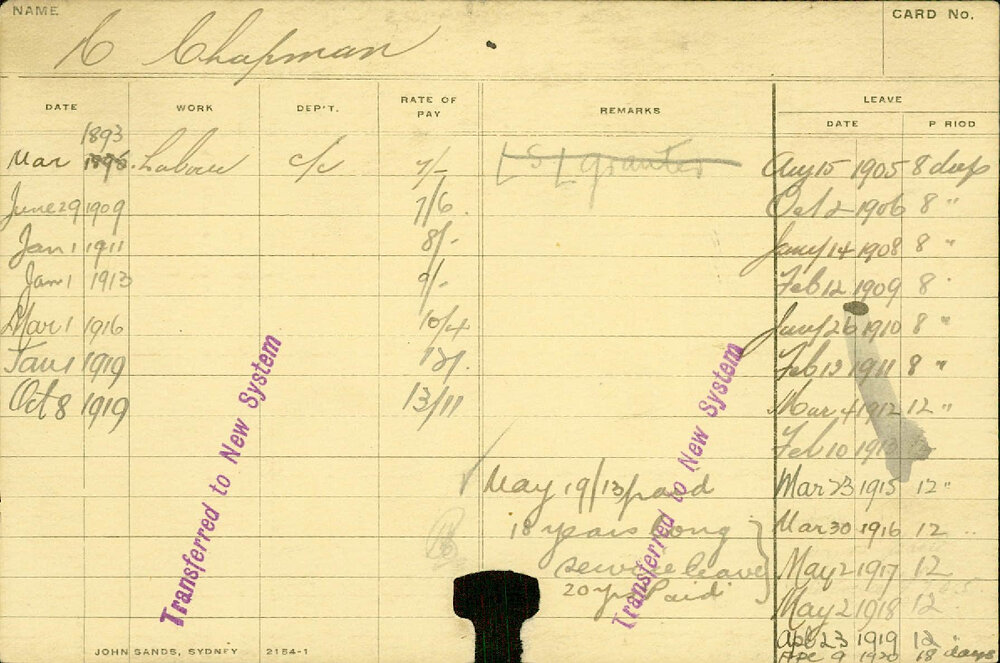 NAME
CARD No.
Chapman
DATE WORK DEP'T. RATE OF PAY REMARKS LEAVE
DATE P RIOD
1893
Mar 1896. Labour c/c 7/- L S L granted Aug 15 1905 8 days
June 29 1909 7/6 Oct 2 1906 8 "
Jan 1 1911 8/- Jany 14 1908 8 "
Jan 1 1913 9/- Feb 12 1909 8 "
Mar 1 1916 10/4 Jany 26 1910 8 "
Jan 1 1919 Feb 13 1911 8 "
Oct 8 1919 13/11 Mar 4 1912 12 "
Feb 10
May 19/13 paid Mar 23 1915 12 "
18 years long Mar 30 1916 12
service leave May 2 1917 12
20 yrs Paid May 2 1918 12
Apl 23 1919 12 "
Apl 9 1920 18 days
Transferred to New System
Transferred to New System
JOHN SANDS, SYDNEY 2154-1